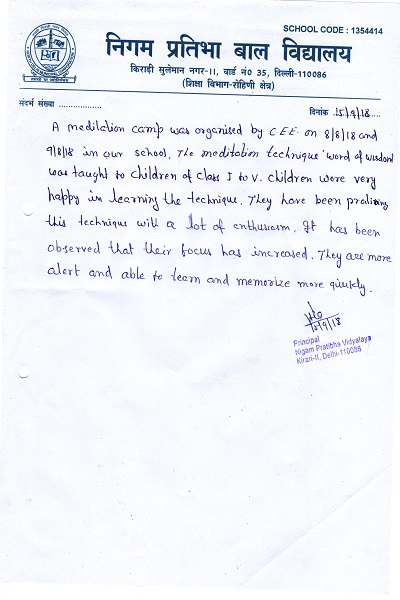 SCHOOL CODE : 1354414
निगम प्रतिभा बाल विद्यालय
किराड़ी सुलेमान नगर-II, वार्ड नं0 35, दिल्ली-110086
(शिक्षा विभाग-रोहिणी क्षेत्र)
संदर्भ संख्या ..................
दिनांक 15/9/18
A meditation camp was organised by C.E.E. on 8/8/18 and
9/8/18 in our school. The meditation technique 'word of wisdom
was taught to children of class I to V. Children were very
happy in learning the technique. They have been practising
this technique with a lot of enthusiasm. It has been
observed that their focus has increased. They are more
alert and able to learn and memorize more quickly.
15/9/18
Principal
Nigam Pratibha Vidyalaya
Kirari-II, Delhi-110086